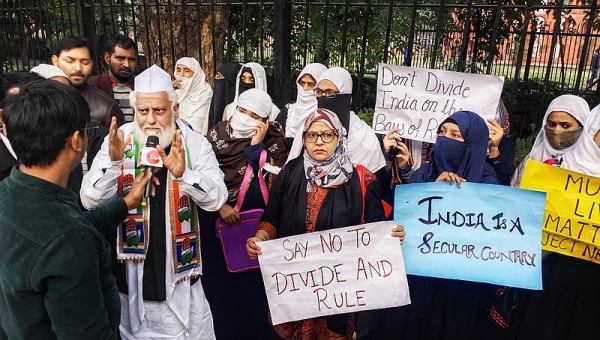 Don't Divide
India on the
SAY NO TO
DIVIDE AND
RULE
INDIA IS A
SECULAR COUNTARY
MU
LIV
MATT
JECT N